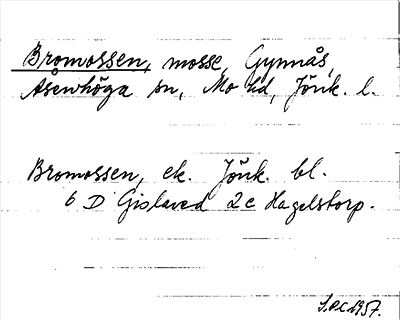 Bromossen, mosse, Gynnås,
Åsenhöga sn, Mo hd, Jönk. l.
Bromossen, ek. Jönk. bl.
6 D Gislaved 2 c Hagelstorp.
1957.